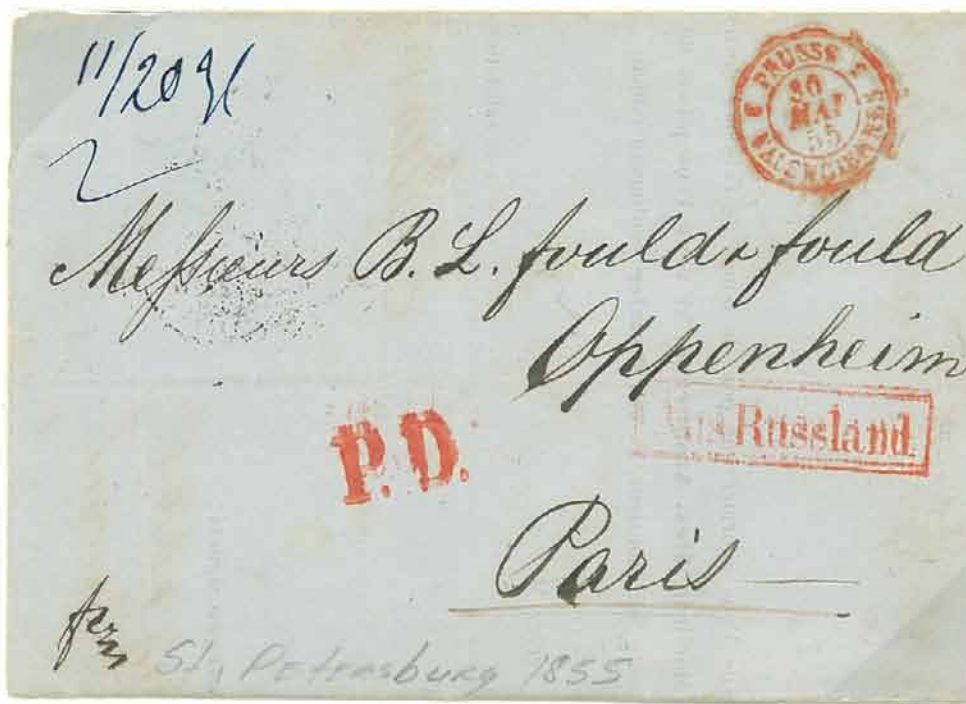 11/20
PRUSSE
30
MAI
55
VALENCIENNES
Messieurs B. L. fould & fould
Oppenheim
Aus Russland.
P.D.
Paris
St. Petersburg 1855